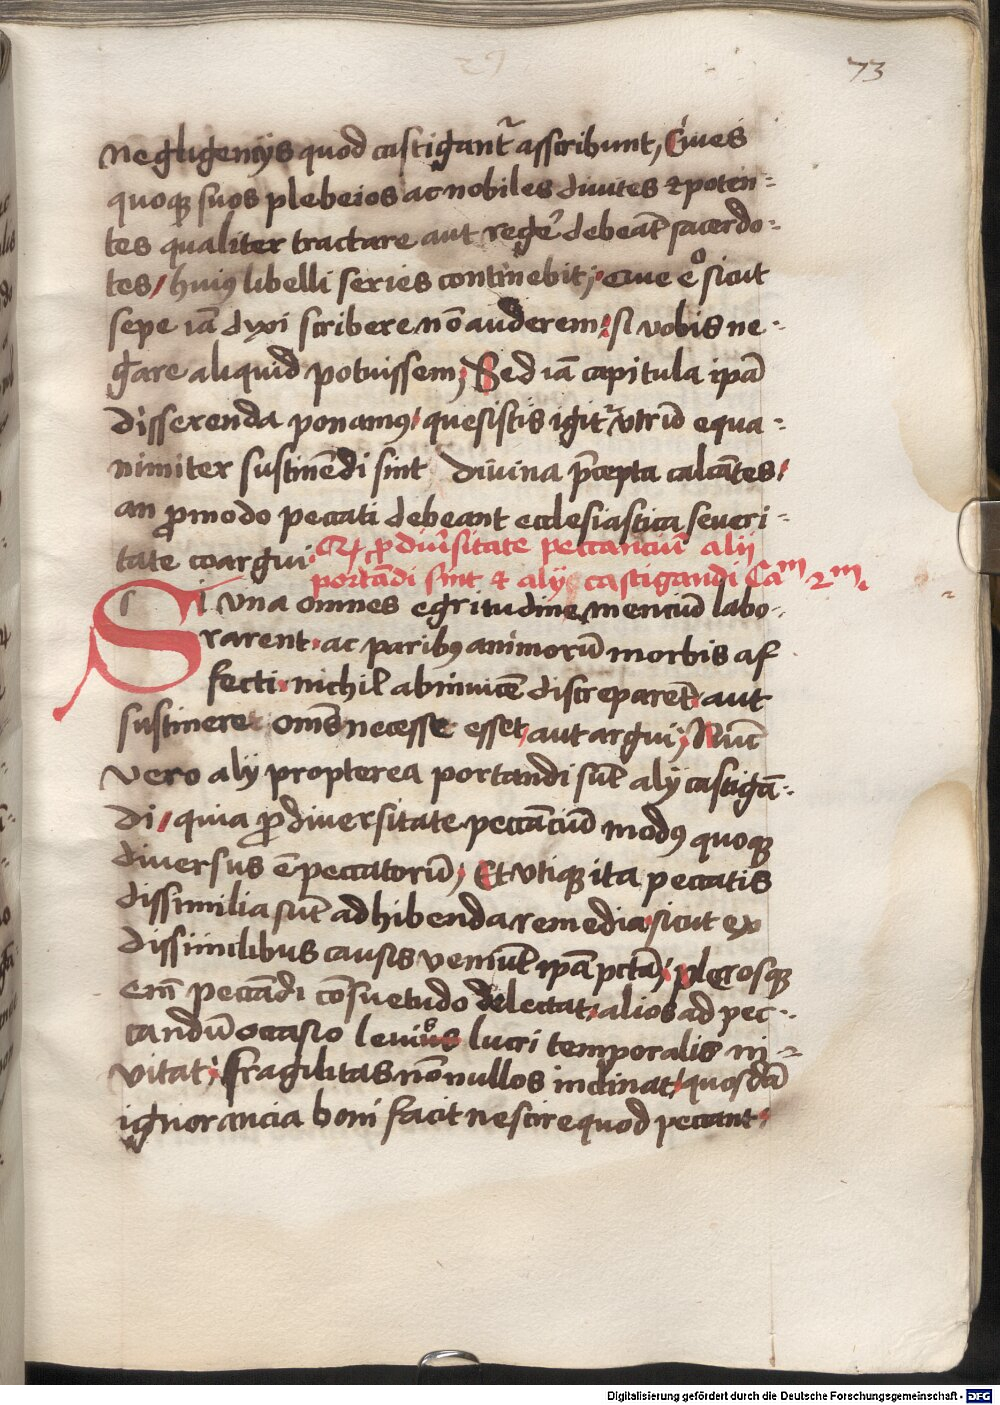 73
negligencijs quod castigant᷑ asscribunt, Ciues
quoqꝫ suos plebeios ac nobiles diuites ⁊ poten-
tes qualiter tractare aut reger̓ debeāt sacerdo-
tes / huiꝰ libelli series continebit; siue eͦ sicut
sepe iā dixi scribere nō auderem: si vobis ne-
gare aliquid potuissem; Sed iā capitula ipā
disserenda ponamꝰ, quesistis igit᷑ vtrū equa-
nimiter sustinēdi sint diuina p̄cepta calcātes /
an ꝓ modo peccati debeant ecclesiastica seueri-
tate coargui. Qꝫ ꝓ diuersitate peccanciū alij
portādi sint ⁊ alij castigandi Caᵐ 2ᵐ.
Si vna omnes egritudine menciū labo-
rarent. ac paribꝰ animorū morbis af
fecti. nichil abinuicē discreparent. aut
sustinere omēs necesse esset, aut argui; Nūc
vero alij propterea portandi sūt alij castigā-
di / quia ꝓ diuersitate peccāciū modꝰ quoqꝫ
diuersus ē peccatorū; Et vtiqꝫ ita peccatis
dissimilia sūt adhibenda remedia. sicut ex
dissimilibus causis veniūt ipā pctā; plerosqꝫ
em̄ peccādi cōsuetudo delectat. alios ad pec-
candū occasio leuius lucri temporalis in-
vitat; fragilitas nōnullos inclinat / quosdā
ignorancia boni facit nescire quod peccant.
Digitalisierung gefördert durch die Deutsche Forschungsgemeinschaft - DFG